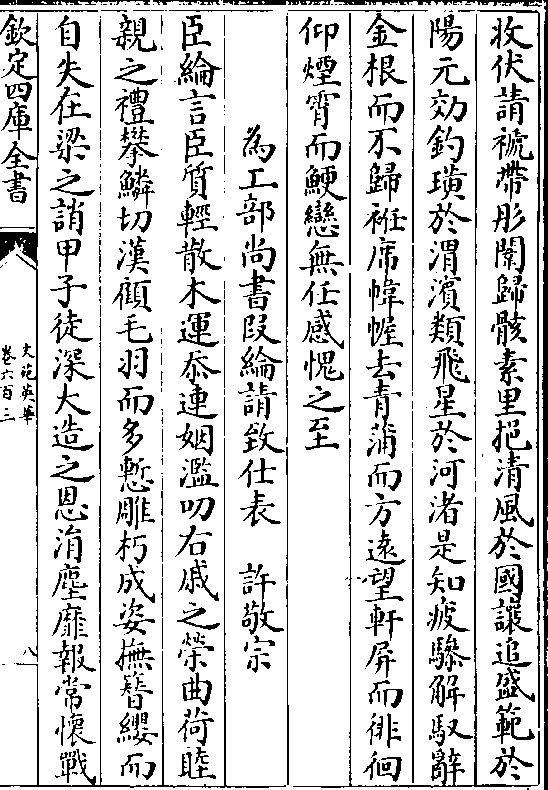 收伏請褫帶彤闈歸骸素里挹清風於國讓追盛範於
陽元効釣璜於渭濱類飛星於河渚是知疲驂解馭辭
金根而不歸袵席幃幄去青蒲而方遠望軒屏而徘徊
仰煙霄而鯁戀無任感愧之至
為工部尚書段綸請致仕表 許敬宗
臣綸言臣質輕散木運忝連姻濫叨右戚之榮曲荷睦
親之禮攀鱗切漢顧毛羽而多慙雕朽成姿撫簪纓而
自失在梁之誚甲子徒深大造之恩涓塵靡報常懷戰
欽定四庫全書
文苑英華
卷六百三
八